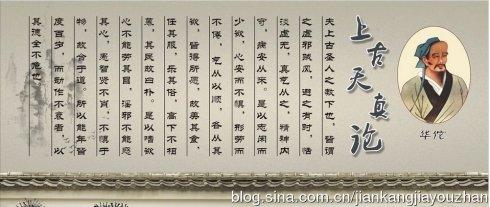 上古天真论
华佗
夫上古圣人之教下也，皆谓
之虚邪贼风，避之有时，恬
淡虚无，真气从之，精神内
守，病安从来。是以志闲而
少欲，心安而不惧，形劳而
不倦，气从以顺，各从其
欲，皆得所愿。故美其食，
任其服，乐其俗，高下不相
慕，其民故曰朴。是以嗜欲
不能劳其目，淫邪不能惑
其心，愚智贤不肖，不惧于
物，故合于道。所以能年皆
度百岁，而动作不衰者，以
其德全不危也。
blog.sina.com.cn/jiankangjiayouzhan